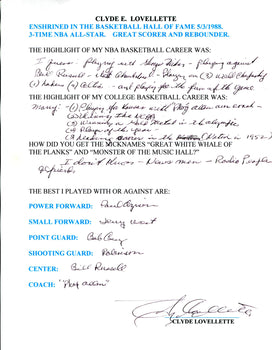 CLYDE E. LOVELLETTE
ENSHRINED IN THE BASKETBALL HALL OF FAME 5/3/1988.
3-TIME NBA ALL-STAR. GREAT SCORER AND REBOUNDER.
THE HIGHLIGHT OF MY NBA BASKETBALL CAREER WAS:
I guess - Playing with - Playing against
Bill Russell - Wilt Chamberlain - Playing on (3) World Championship
(1) Lakers (2) Celtics - and playing for the fun of the game
THE HIGHLIGHT OF MY COLLEGE BASKETBALL CAREER WAS:
Many - (1) Playing for Kansas with Phog Allen as coach -
(2) Winning the NCAA
(3) Winning a Gold Medal in the Olympics
(4) Player of the year -
(5) Leading scorer in the Nation in 1952
HOW DID YOU GET THE NICKNAMES "GREAT WHITE WHALE OF
THE PLANKS" AND "MONSTER OF THE MUSIC HALL?"
I don't know - News men - Radio People
THE BEST I PLAYED WITH OR AGAINST ARE:
POWER FORWARD: Paul Arizin
SMALL FORWARD: Jerry West
POINT GUARD: Bob Cousy
SHOOTING GUARD: Robinson
CENTER: Bill Russell
COACH: "Phog Allen"
Clyde Lovellette
CLYDE LOVELLETTE